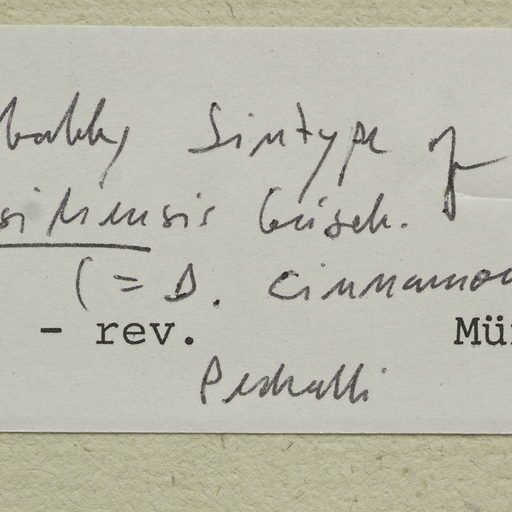 bably Sintype of
sitiensis Grisch.
(= D. cinnamon
- rev. Mün
Pedralli